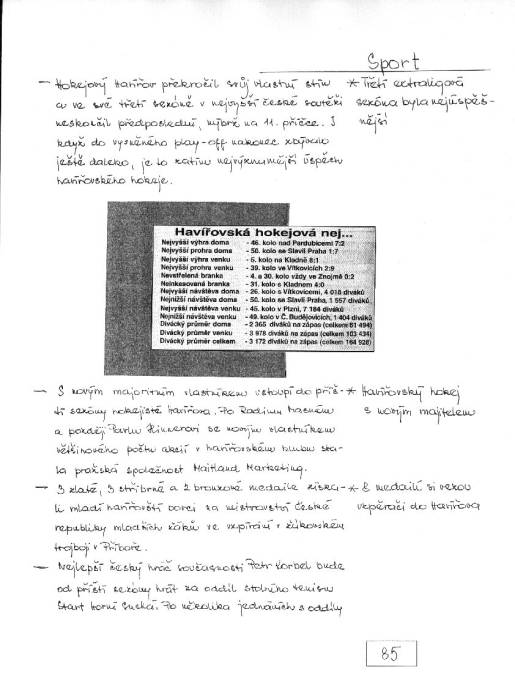 Sport
— Hokejový Havířov překročil svůj vlastní stín
a ve své třetí sezóně v nejvyšší české soutěži
neskončil předposlední, nýbrž na 11. příčce. I
když do vysněného play-off nakonec zbývalo
ještě daleko, je to zatím nejvýznamnější úspěch
havířovského hokeje.
* Třetí extraligová
sezóna byla nejúspěš-
nější
Havířovská hokejová nej...
Nejvyšší výhra doma - 46. kolo nad Pardubicemi 7:2
Nejvyšší prohra doma - 50. kolo se Slavií Praha 1:7
Nejvyšší výhra venku - 5. kolo na Kladně 8:1
Nejvyšší prohra venku - 39. kolo ve Vítkovicích 2:9
Nevstřelená branka - 4. a 30. kolo vždy ve Znojmě 0:2
Neinkasovaná branka - 31. kolo s Kladnem 4:0
Nejvyšší návštěva doma - 26. kolo s Vítkovicemi, 4 018 diváků
Nejnižší návštěva doma - 50. kolo se Slavií Praha, 1 557 diváků
Nejvyšší návštěva venku - 45. kolo v Plzni, 7 184 diváků
Nejnižší návštěva venku - 49. kolo v Č. Budějovicích, 1 404 diváků
Divácký průměr doma - 2 365 diváků na zápas (celkem 61 494)
Divácký průměr venku - 3 978 diváků na zápas (celkem 103 434)
Divácký průměr celkem - 3 172 diváků na zápas (celkem 164 928)
— S novým majoritním vlastníkem vstoupí do příš-
tí sezóny hokejisté Havířova. Po Radimu Macném
a později Pavlu Hinnerovi se novým vlastníkem
většinového počtu akcií v havířovském klubu sta-
la pražská společnost Maitland Marketing.
* Havířovský hokej
s novým majitelem
— 3 zlaté, 3 stříbrné a 2 bronzové medaile získa-
li mladí havířovští borci na mistrovství České
republiky mladších žáků ve vzpírání v žákovském
trojboji v Příboře.
* 8 medailí si vezou
vzpěrači do Havířova
— Nejlepší český hráč současnosti Petr Korbel bude
od příští sezóny hrát za oddíl stolního tenisu
Start Horní Suchá. Po několika jednáních s oddíly
85